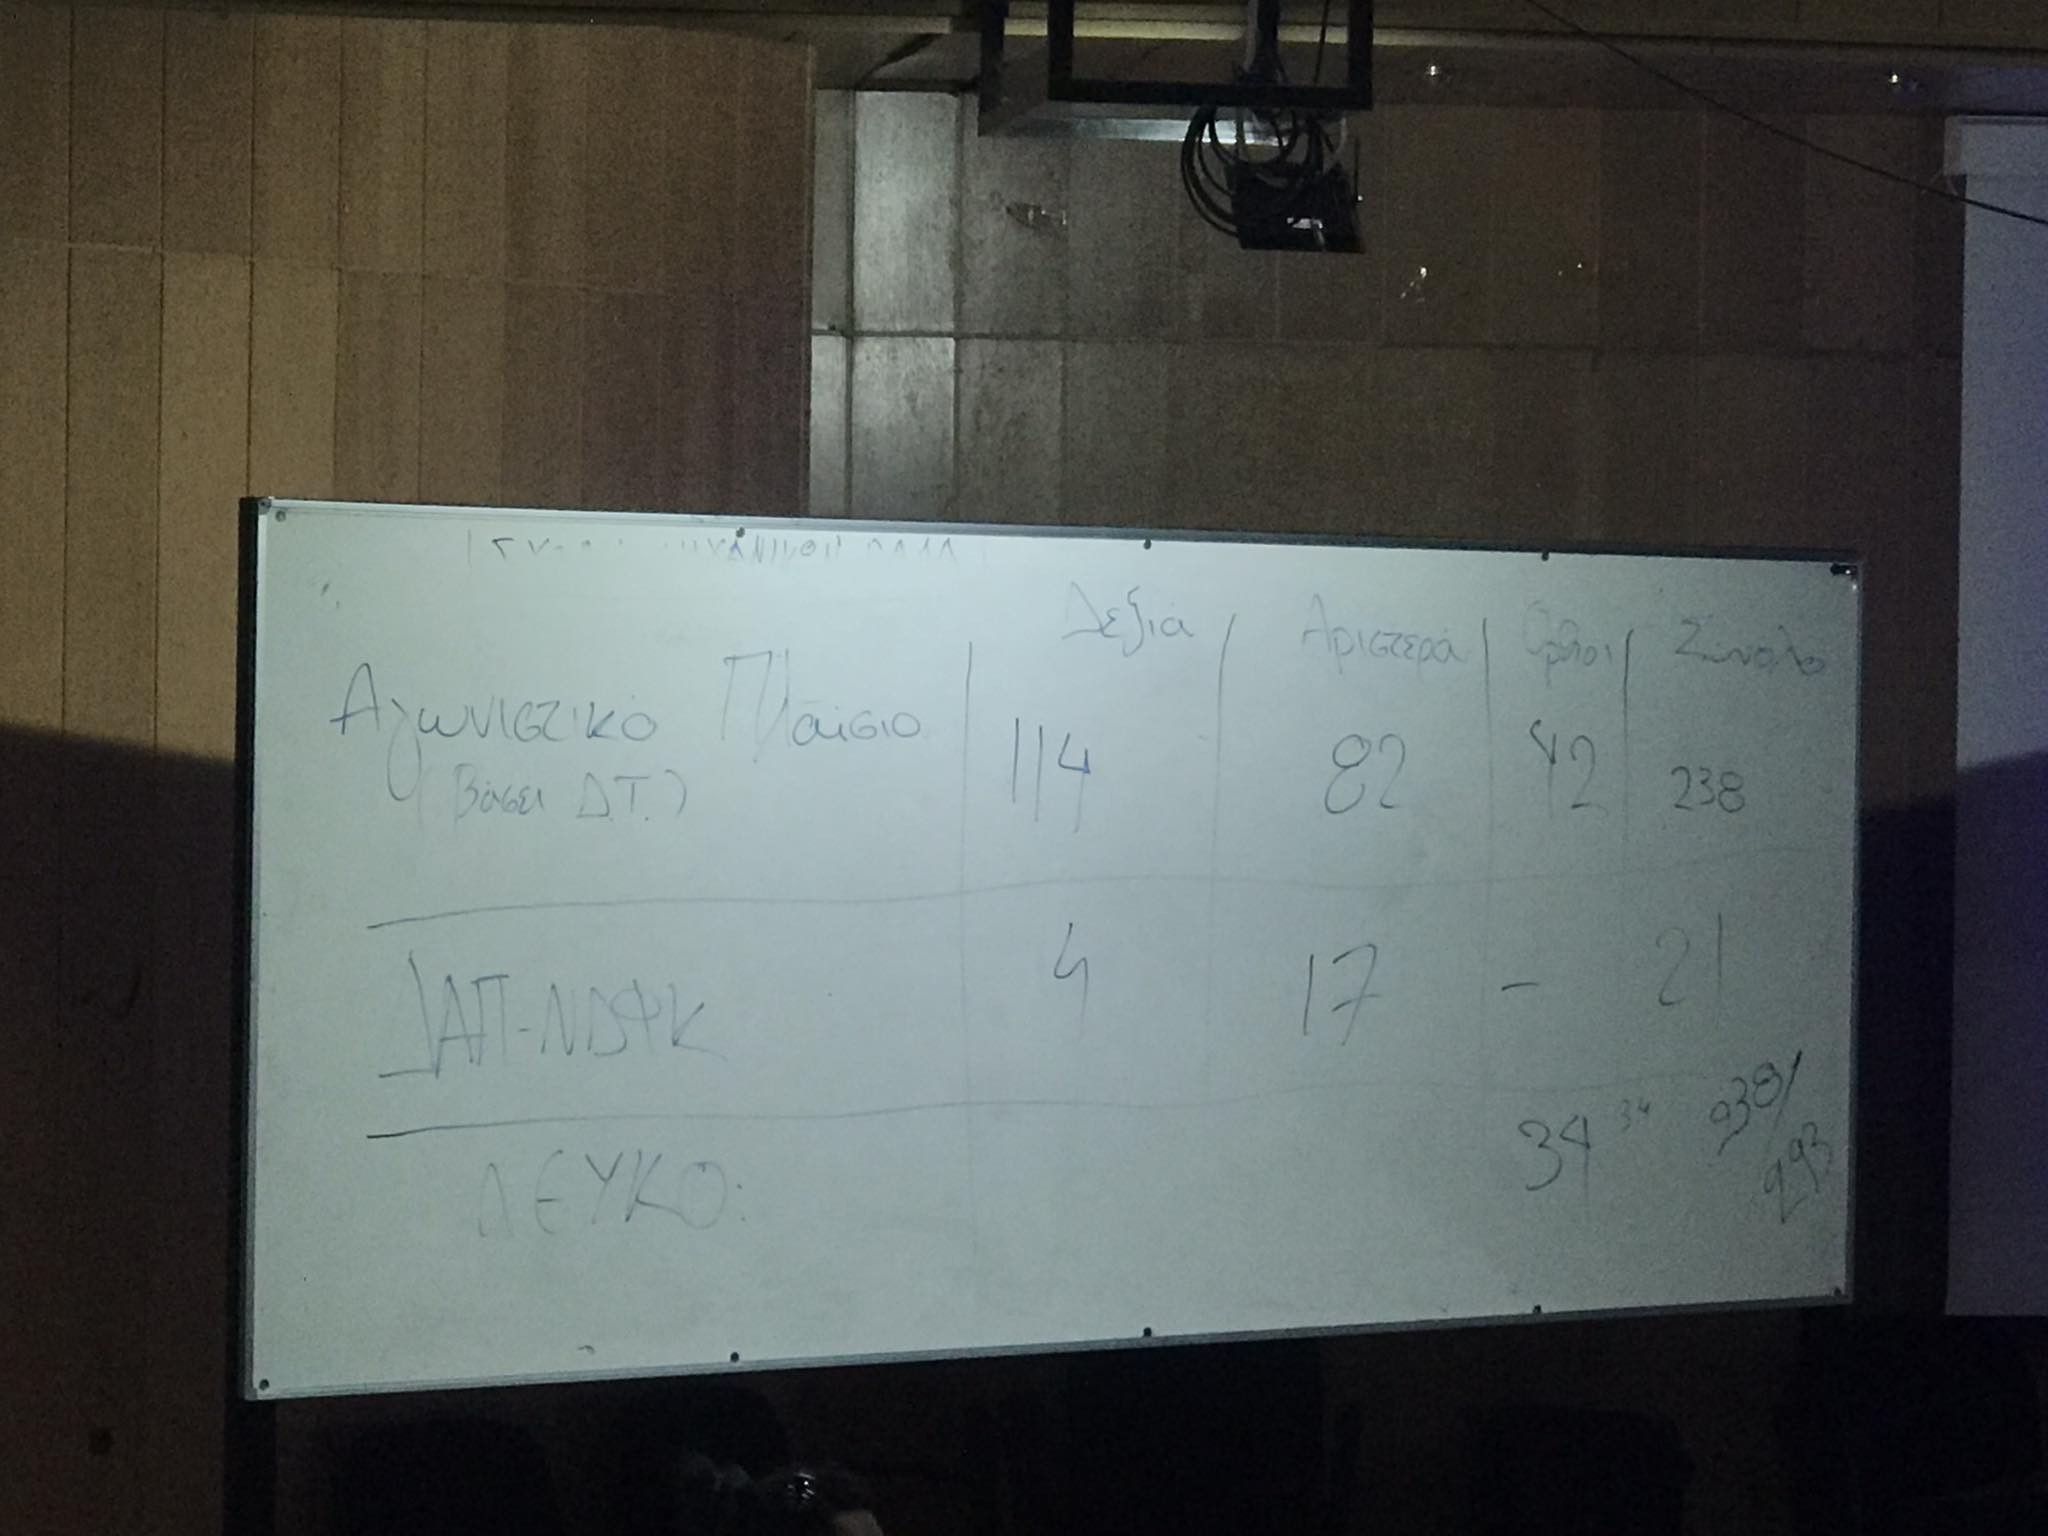 Δεξιά Αριστερά Όρθιοι Σύνολο
Αγωνιστικό Πλαίσιο 114 82 42 238
(Βάσει Δ.Τ.)
ΔΑΠ-ΝΔΦΚ 4 17 - 21
ΛΕΥΚΟ: 34 34 938/
293